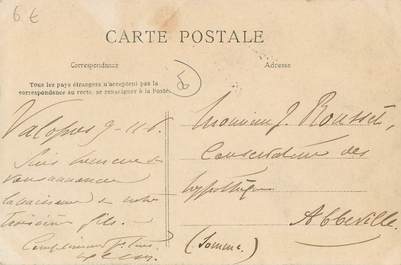 6 €
CARTE POSTALE
Correspondance
Adresse
Tous les pays étrangers n'acceptent pas la
correspondance au recto, se renseigner à la Poste.
6
Valognes 9-11-8.
Suis heureux de
vous annoncer
la naissance de notre
troisième fils.
Monsieur J. Rousset,
Conservateur des
hypothèques
Abbeville.
(Somme.)